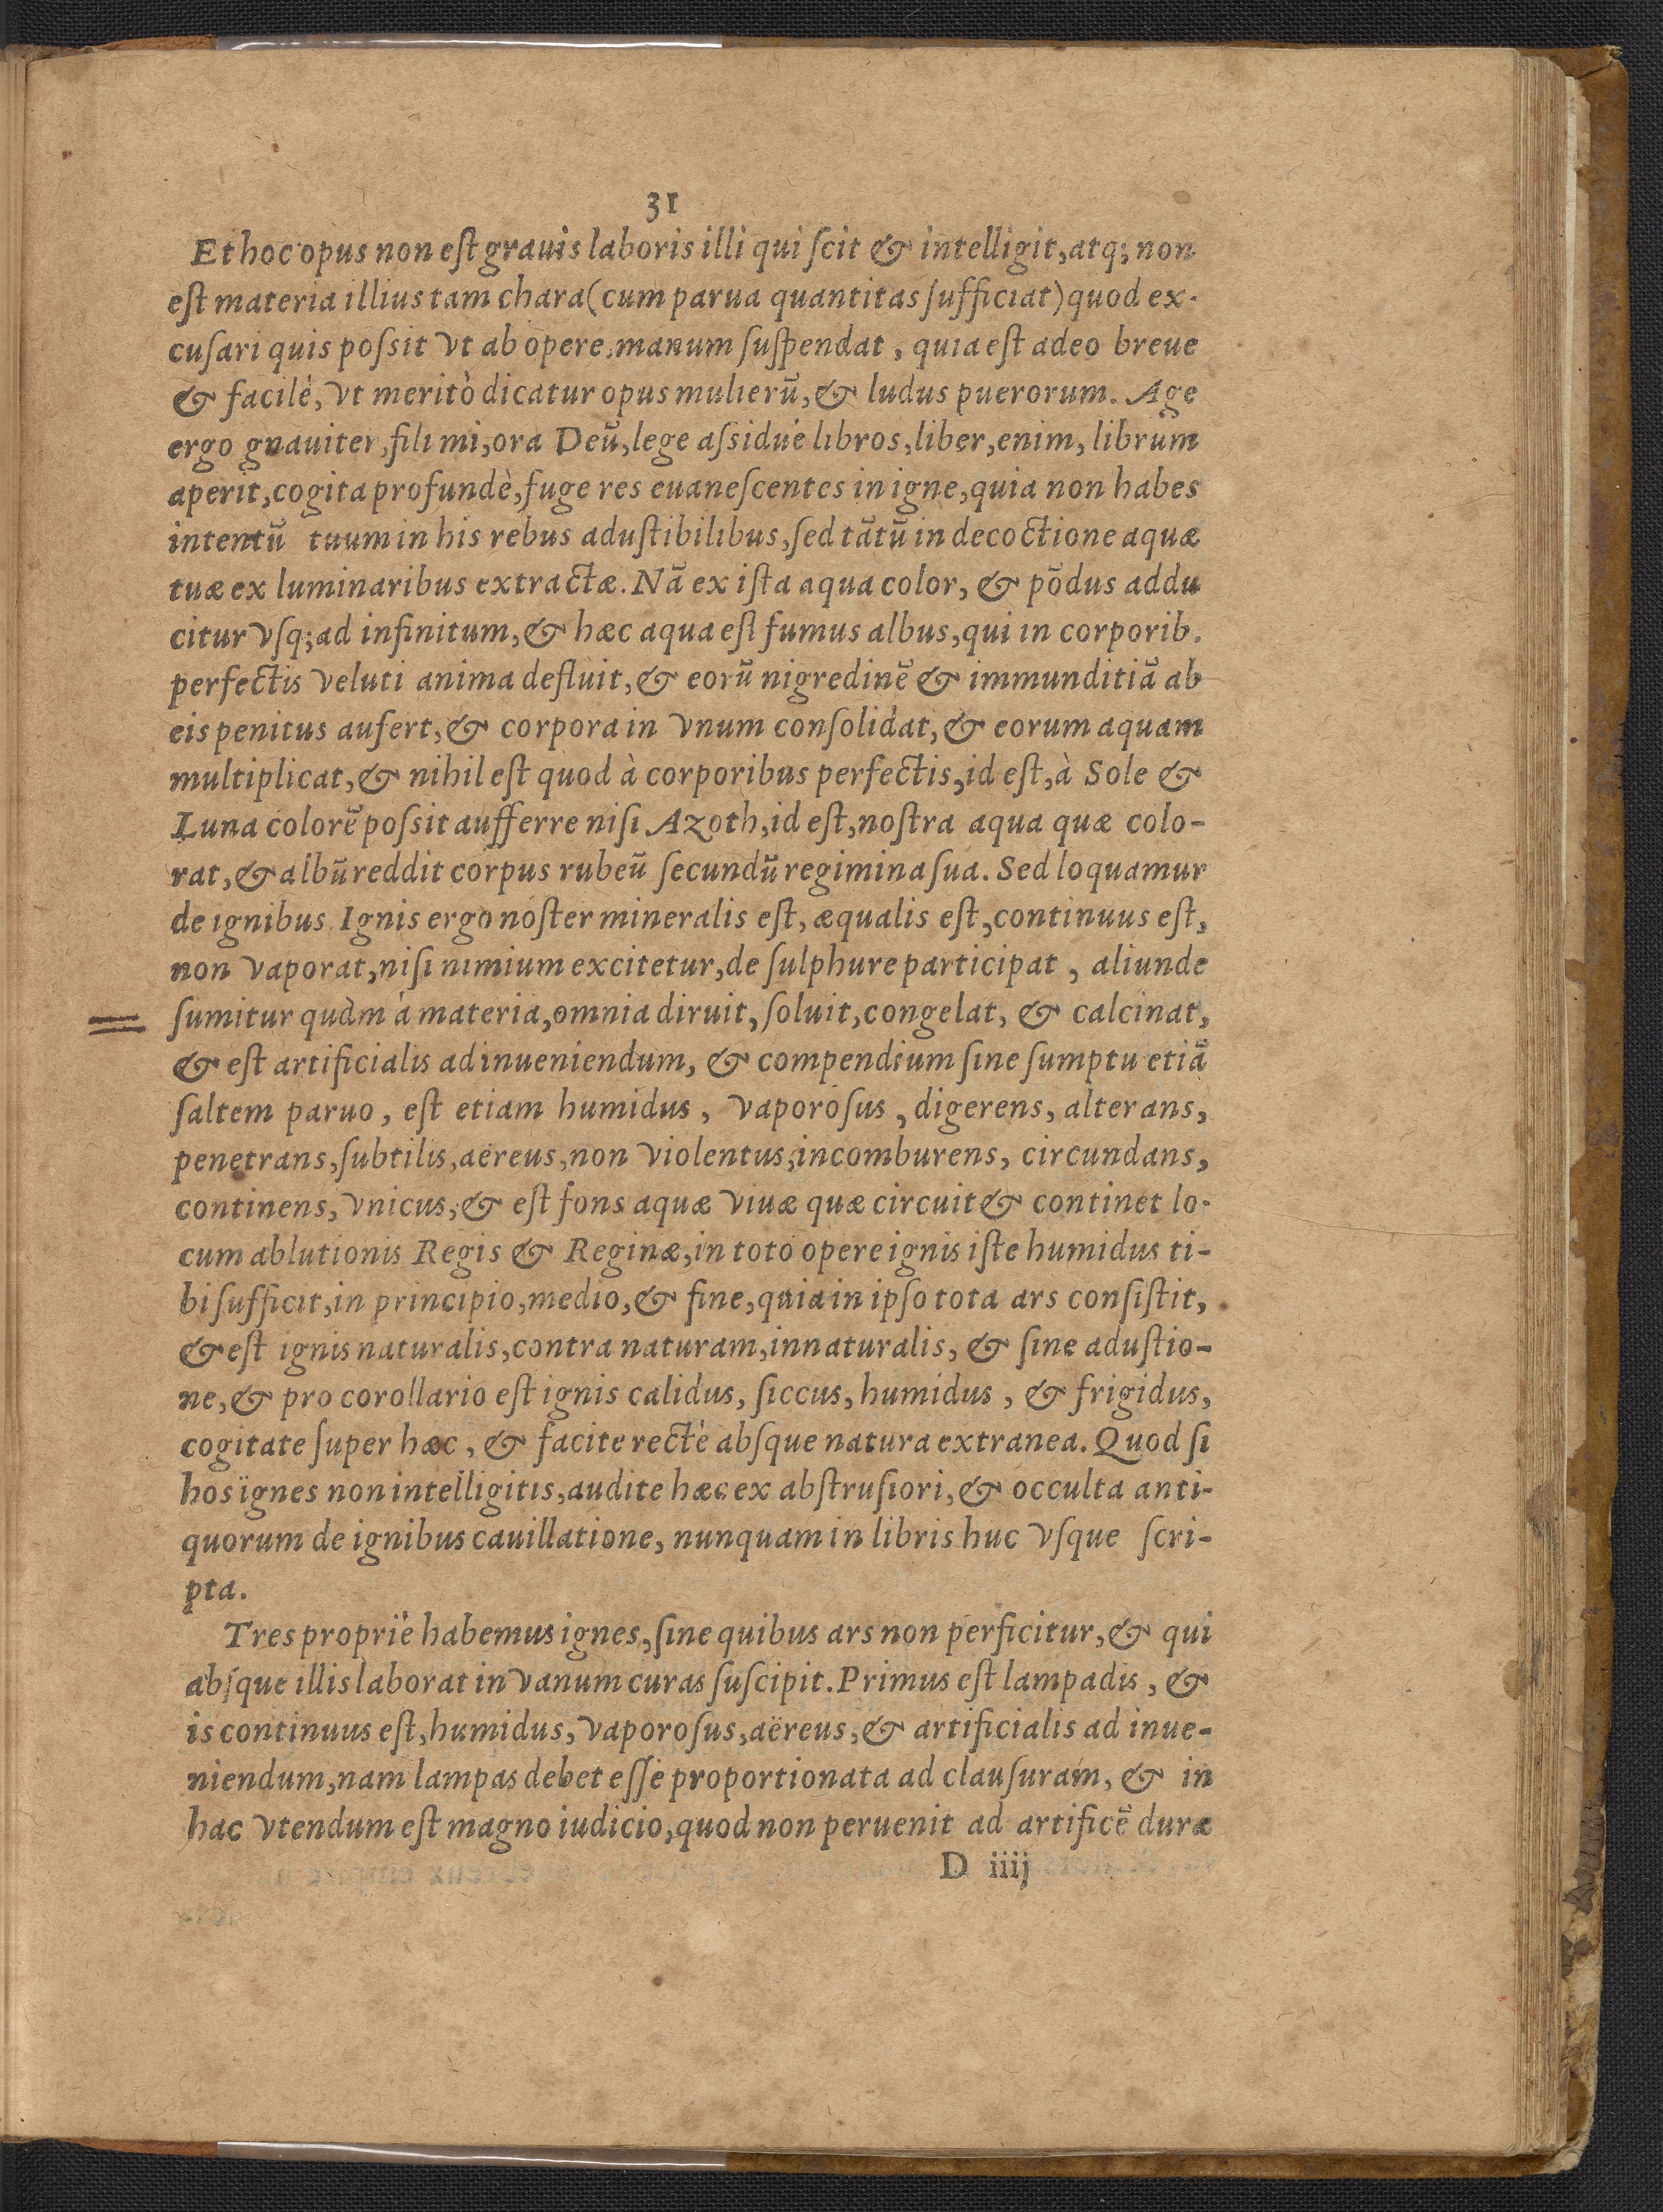 31
Et hoc opus non eſt grauis laboris illi qui ſcit & intelligit, atq; non
eſt materia illius tam chara (cum parua quantitas ſufficiat) quod ex-
cuſari quis poſsit vt ab opere, manum ſuſpendat, quia eſt adeo breue
& facilè, vt meritò dicatur opus mulierū, & ludus puerorum. Age
ergo gnauiter, fili mi, ora Deū, lege aſsiduè libros, liber, enim, librum
aperit, cogita profundè, fuge res euaneſcentes in igne, quia non habes
intentū tuum in his rebus aduſtibilibus, ſed tātū in decoctione aquæ
tuæ ex luminaribus extractæ. Nā ex iſta aqua color, & pōdus addu
citur vſq; ad infinitum, & hæc aqua eſt fumus albus, qui in corporib.
perfectis veluti anima defluit, & eorū nigredinē & immunditiā ab
eis penitus aufert, & corpora in vnum conſolidat, & eorum aquam
multiplicat, & nihil eſt quod à corporibus perfectis, id eſt, à Sole &
Luna colorē poſsit aufferre niſi Azoth, id eſt, noſtra aqua quæ colo-
rat, & albū reddit corpus rubeū ſecundū regimina ſua. Sed loquamur
de ignibus. Ignis ergo noſter mineralis eſt, æqualis eſt, continuus eſt,
non vaporat, niſi nimium excitetur, de ſulphure participat, aliunde
ſumitur quàm à materia, omnia diruit, ſoluit, congelat, & calcinat,
& eſt artificialis ad inueniendum, & compendium ſine ſumptu etiā
ſaltem paruo, eſt etiam humidus, vaporoſus, digerens, alterans,
penetrans, ſubtilis, aëreus, non violentus, incomburens, circundans,
continens, vnicus, & eſt fons aquæ viuæ quæ circuit & continet lo-
cum ablutionis Regis & Reginæ, in toto opere ignis iſte humidus ti-
bi ſufficit, in principio, medio, & fine, quia in ipſo tota ars conſiſtit,
& eſt ignis naturalis, contra naturam, innaturalis, & ſine aduſtio-
ne, & pro corollario eſt ignis calidus, ſiccus, humidus, & frigidus,
cogitate ſuper hæc, & facite rectè abſque natura extranea. Quod ſi
hos ignes non intelligitis, audite hæc ex abſtruſiori, & occulta anti-
quorum de ignibus cauillatione, nunquam in libris huc vſque ſcri-
pta.
Tres propriè habemus ignes, ſine quibus ars non perficitur, & qui
abſque illis laborat in vanum curas ſuſcipit. Primus eſt lampadis, &
is continuus eſt, humidus, vaporoſus, aëreus, & artificialis ad inue-
niendum, nam lampas debet eſſe proportionata ad clauſuram, & in
hac vtendum eſt magno iudicio, quod non peruenit ad artificē duræ
D iiij